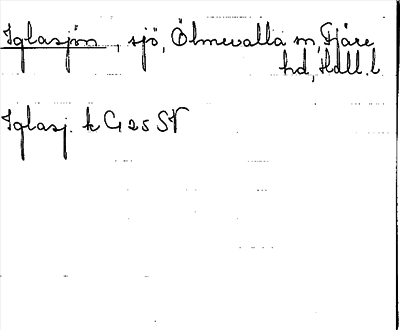 Iglasjön, sjö, Ölmevalla sn, Fjäre
hd, Hall. l.
Iglasj. k G 25 SV